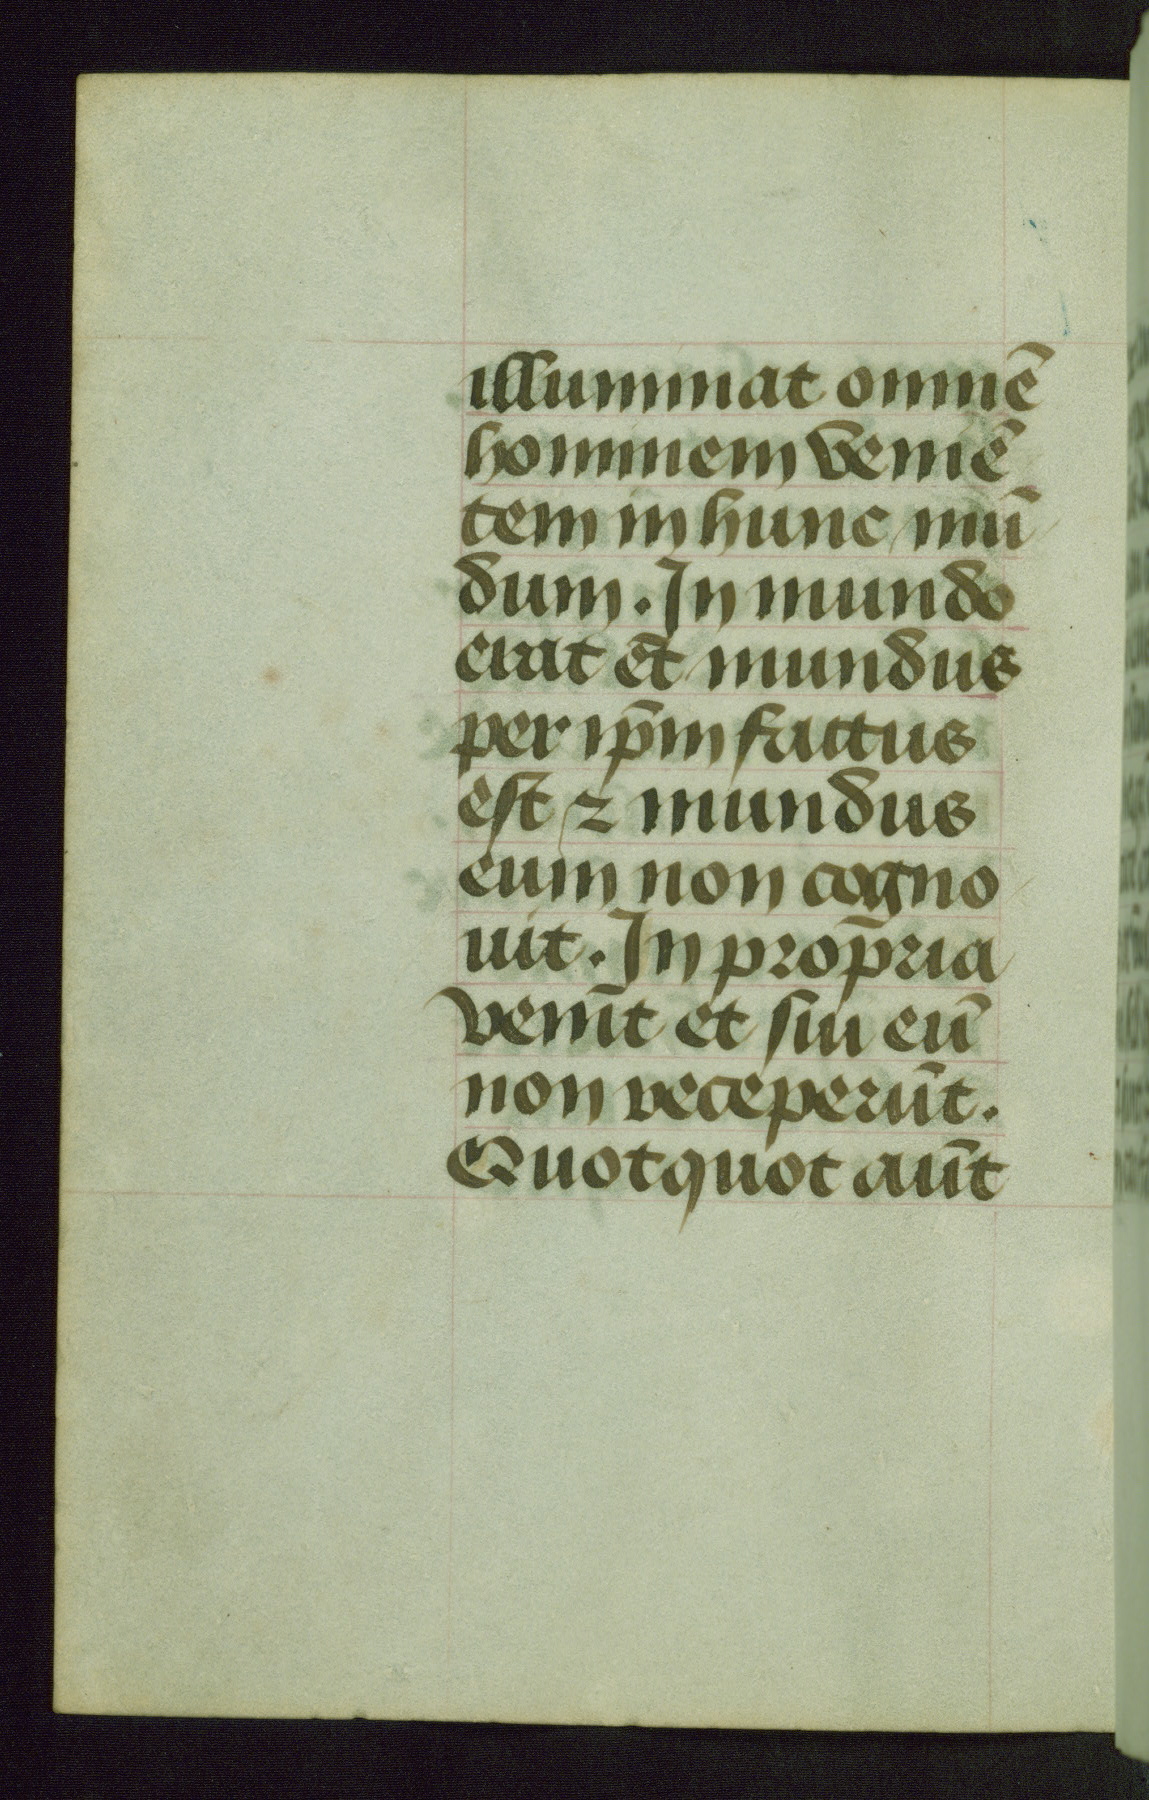 illuminat omnē
hominem veniē
tem in hunc mū
dum. In mundo
erat et̄ mundus
per ip̄m factus
est ⁊ mundus
eum non cogno
uit. In prop̄ria
venīt et sui eū
non receperūt.
Quotquot aūt